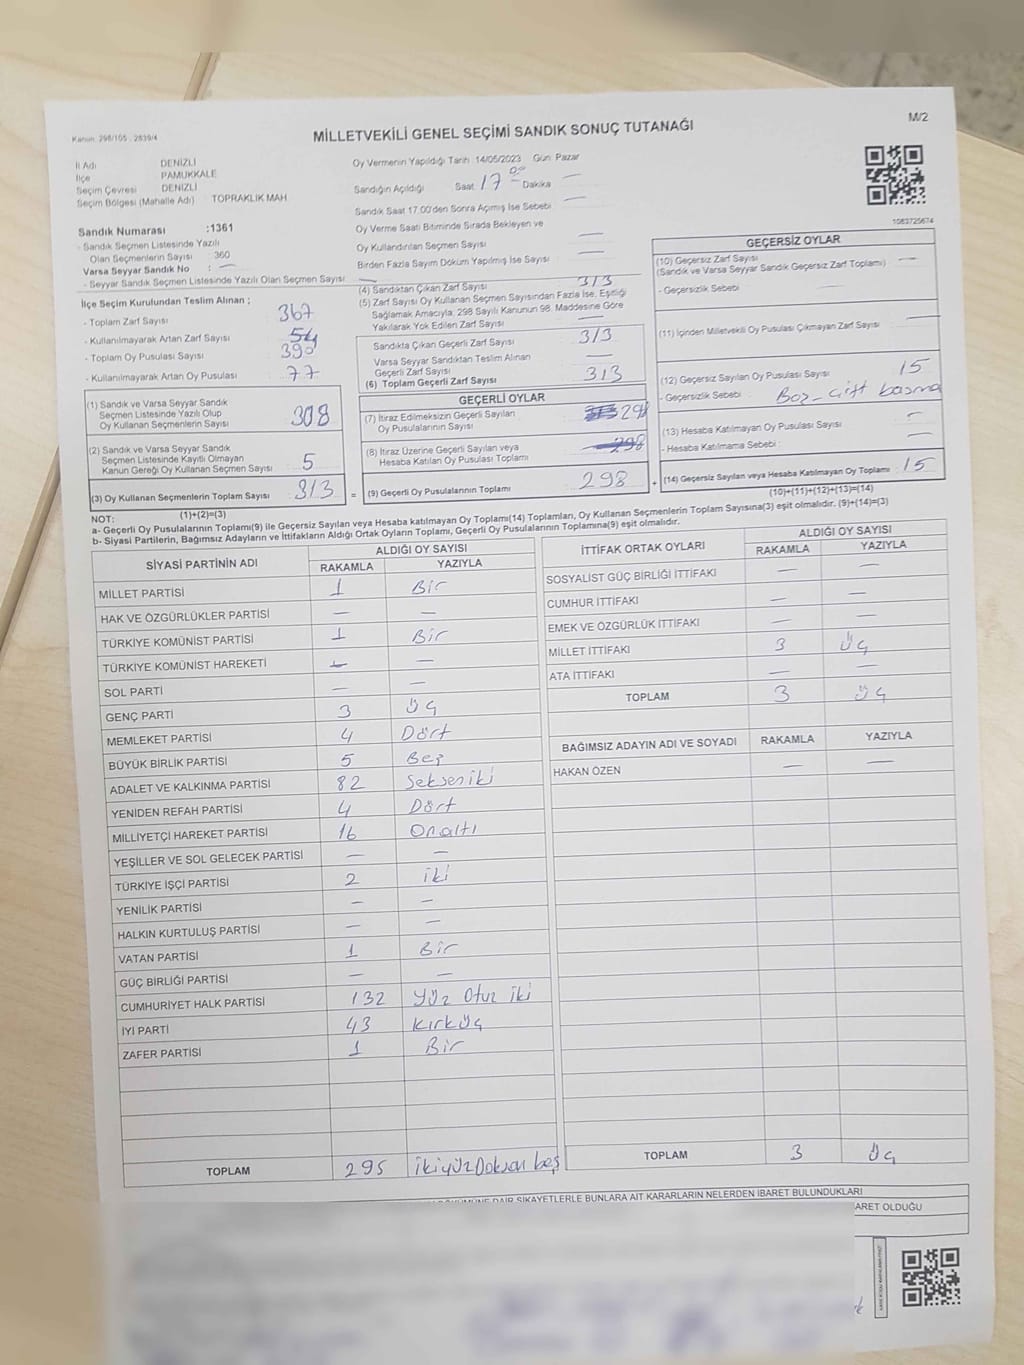 M/2
Kanun: 298/105 - 2839/4
MİLLETVEKİLİ GENEL SEÇİMİ SANDIK SONUÇ TUTANAĞI
İl Adı DENİZLİ
İlçe PAMUKKALE
Seçim Çevresi DENİZLİ
Seçim Bölgesi (Mahalle Adı) TOPRAKLIK MAH
Sandık Numarası :1361
- Sandık Seçmen Listesinde Yazılı
Olan Seçmenlerin Sayısı : 360
Varsa Seyyar Sandık No : —
- Seyyar Sandık Seçmen Listesinde Yazılı Olan Seçmen Sayısı —
Oy Vermenin Yapıldığı Tarih :14/05/2023 Gün: Pazar
Sandığın Açıldığı Saat 17 00 Dakika —
Sandık Saat 17.00'den Sonra Açımış İse Sebebi —
Oy Verme Saati Bitiminde Sırada Bekleyen ve
Oy Kullandırılan Seçmen Sayısı —
Birden Fazla Sayım Döküm Yapılmış İse Sayısı —
1083725674
İlçe Seçim Kurulundan Teslim Alınan ;
- Toplam Zarf Sayısı 367
- Kullanılmayarak Artan Zarf Sayısı 54
- Toplam Oy Pusulası Sayısı 390
- Kullanılmayarak Artan Oy Pusulası 77
(1) Sandık ve Varsa Seyyar Sandık
Seçmen Listesinde Yazılı Olup
Oy Kullanan Seçmenlerin Sayısı 308
(2) Sandık ve Varsa Seyyar Sandık
Seçmen Listesinde Kayıtlı Olmayan
Kanun Gereği Oy Kullanan Seçmen Sayısı 5
(3) Oy Kullanan Seçmenlerin Toplam Sayısı 313
(1)+(2)=(3)
(4) Sandıktan Çıkan Zarf Sayısı 313
(5) Zarf Sayısı Oy Kullanan Seçmen Sayısından Fazla İse, Eşitliği
Sağlamak Amacıyla, 298 Sayılı Kanunun 98. Maddesine Göre
Yakılarak Yok Edilen Zarf Sayısı —
Sandıkta Çıkan Geçerli Zarf Sayısı 313
Varsa Seyyar Sandıktan Teslim Alınan
Geçerli Zarf Sayısı —
(6) Toplam Geçerli Zarf Sayısı 313
GEÇERLİ OYLAR
(7) İtiraz Edilmeksizin Geçerli Sayılan
Oy Pusulalarının Sayısı 298
(8) İtiraz Üzerine Geçerli Sayılan veya
Hesaba Katılan Oy Pusulası Toplamı
= (9) Geçerli Oy Pusulalarının Toplamı 298
GEÇERSİZ OYLAR
(10) Geçersiz Zarf Sayısı
(Sandık ve Varsa Seyyar Sandık Geçersiz Zarf Toplamı) —
- Geçersizlik Sebebi —
(11) İçinden Milletvekili Oy Pusulası Çıkmayan Zarf Sayısı —
(12) Geçersiz Sayılan Oy Pusulası Sayısı 15
- Geçersizlik Sebebi : Boş - çift basma
(13) Hesaba Katılmayan Oy Pusulası Sayısı —
- Hesaba Katılmama Sebebi : —
+ (14) Geçersiz Sayılan veya Hesaba Katılmayan Oy Toplamı 15
(10)+(11)+(12)+(13)=(14)
NOT:
a- Geçerli Oy Pusulalarının Toplamı(9) ile Geçersiz Sayılan veya Hesaba katılmayan Oy Toplamı(14) Toplamları, Oy Kullanan Seçmenlerin Toplam Sayısına(3) eşit olmalıdır. (9)+(14)=(3)
b- Siyasi Partilerin, Bağımsız Adayların ve İttifakların Aldığı Ortak Oyların Toplamı, Geçerli Oy Pusulalarının Toplamına(9) eşit olmalıdır.
SİYASİ PARTİNİN ADI ALDIĞI OY SAYISI
RAKAMLA YAZIYLA
MİLLET PARTİSİ 1 Bir
HAK VE ÖZGÜRLÜKLER PARTİSİ — —
TÜRKİYE KOMÜNİST PARTİSİ 1 Bir
TÜRKİYE KOMÜNİST HAREKETİ — —
SOL PARTİ — —
GENÇ PARTİ 3 Üç
MEMLEKET PARTİSİ 4 Dört
BÜYÜK BİRLİK PARTİSİ 5 Beş
ADALET VE KALKINMA PARTİSİ 82 Sekseniki
YENİDEN REFAH PARTİSİ 4 Dört
MİLLİYETÇİ HAREKET PARTİSİ 16 Onaltı
YEŞİLLER VE SOL GELECEK PARTİSİ — —
TÜRKİYE İŞÇİ PARTİSİ 2 iki
YENİLİK PARTİSİ — —
HALKIN KURTULUŞ PARTİSİ — —
VATAN PARTİSİ 1 Bir
GÜÇ BİRLİĞİ PARTİSİ — —
CUMHURİYET HALK PARTİSİ 132 Yüz Otuz iki
İYİ PARTİ 43 Kırküç
ZAFER PARTİSİ 1 Bir
TOPLAM 295 ikiyüzDoksan beş
İTTİFAK ORTAK OYLARI ALDIĞI OY SAYISI
RAKAMLA YAZIYLA
SOSYALİST GÜÇ BİRLİĞİ İTTİFAKI — —
CUMHUR İTTİFAKI — —
EMEK VE ÖZGÜRLÜK İTTİFAKI — —
MİLLET İTTİFAKI 3 Üç
ATA İTTİFAKI — —
TOPLAM 3 Üç
BAĞIMSIZ ADAYIN ADI VE SOYADI RAKAMLA YAZIYLA
HAKAN ÖZEN — —
TOPLAM 3 Üç
DÖKÜMÜNE DAİR ŞİKAYETLERLE BUNLARA AİT KARARLARIN NELERDEN İBARET BULUNDUKLARI
ARET OLDUĞU